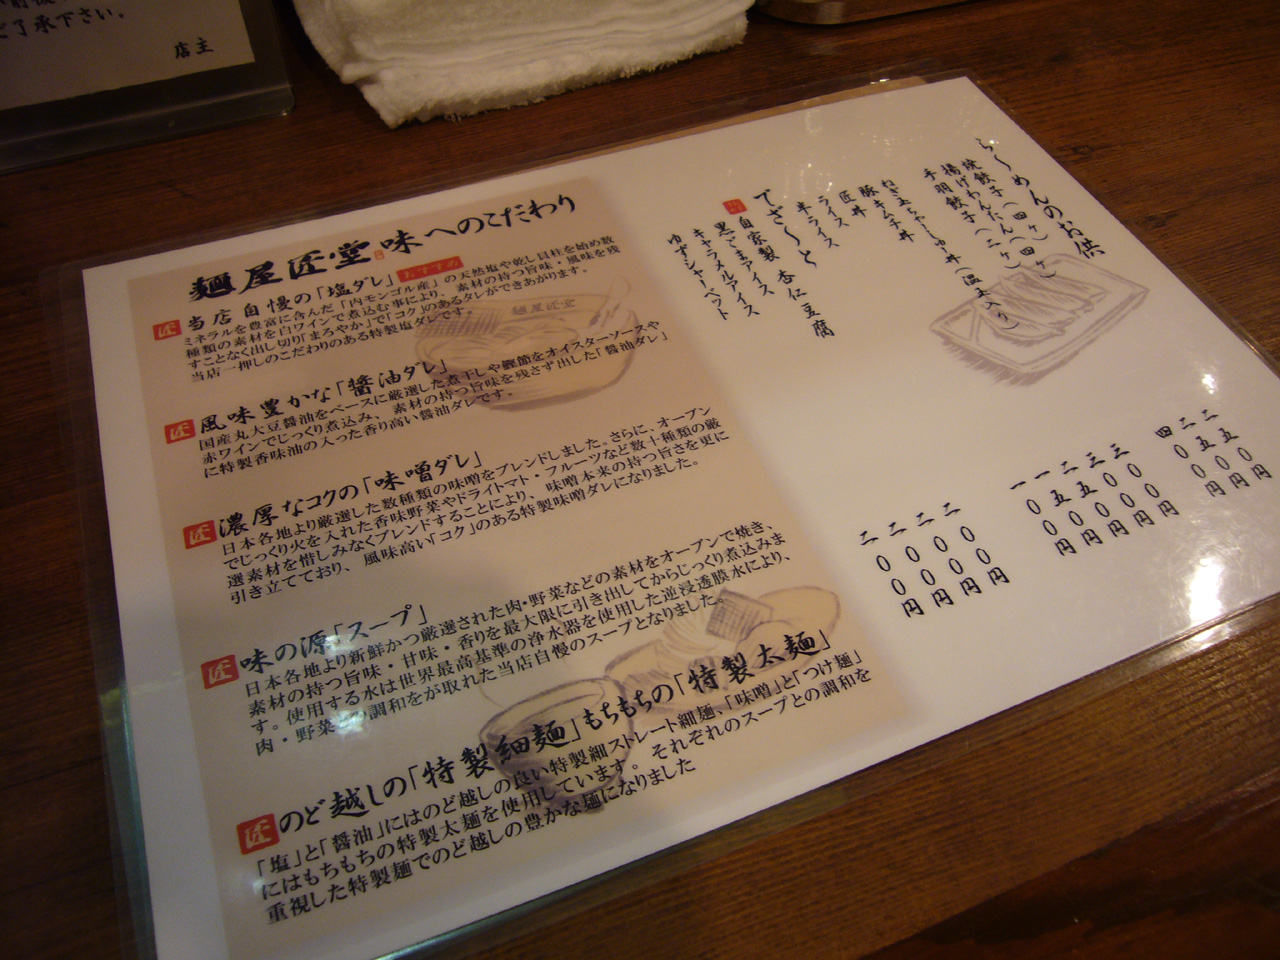 ご了承下さい。
店主
麺屋匠堂 味へのこだわり
匠 当店自慢の「塩ダレ」 おすすめ
ミネラルを豊富に含んだ「内モンゴル産」の天然塩や乾し貝柱を始め数
種類の素材を白ワインで煮込む事により、素材の持つ旨味・風味を残
すことなく出し切り「まろやか」で「コク」のあるタレができあがります。
当店一押しのこだわりのある特製塩ダレです。
麺屋匠堂
匠 風味豊かな「醤油ダレ」
国産丸大豆醤油をベースに厳選した煮干しや鰹節をオイスターソースや
赤ワインでじっくり煮込み、素材の持つ旨味を残さず出した「醤油ダレ」
に特製香味油の入った香り高い醤油ダレです。
匠 濃厚なコクの「味噌ダレ」
日本各地より厳選した数種類の味噌をブレンドしました。さらに、オーブン
でじっくり火を入れた香味野菜やドライトマト・フルーツなど数十種類の厳
選素材を惜しみなくブレンドすることにより、味噌本来の持つ旨さを更に
引き立てており、風味高い「コク」のある特製味噌ダレになりました。
匠 味の源「スープ」
日本各地より新鮮かつ厳選された肉・野菜などの素材をオーブンで焼き、
素材の持つ旨味・甘味・香りを最大限に引き出してからじっくり煮込みま
す。使用する水は世界最高基準の浄水器を使用した逆浸透膜水により、
肉・野菜の調和をが取れた当店自慢のスープとなりました。
匠 のど越しの「特製細麺」もちもちの「特製太麺」
「塩」と「醤油」にはのど越しの良い特製細ストレート細麺、「味噌」と「つけ麺」
にはもちもちの特製太麺を使用しています。それぞれのスープとの調和を
重視した特製麺でのど越しの豊かな麺になりました
ら〜めんのお供
焼餃子(四ヶ)
揚げわんたん(四ヶ)
手羽餃子(二ヶ)
ねぎ玉ちゃーしゅー丼(温玉入り)
豚キムチ丼
匠丼
ライス
半ライス
でざ〜と
自家製 杏仁豆腐
黒ごまアイス
キャラメルアイス
ゆずシャーベット
二五〇円
二五〇円
四〇〇円
三〇〇円
三五〇円
二五〇円
一五〇円
一〇〇円
二〇〇円
二〇〇円
二〇〇円
二〇〇円